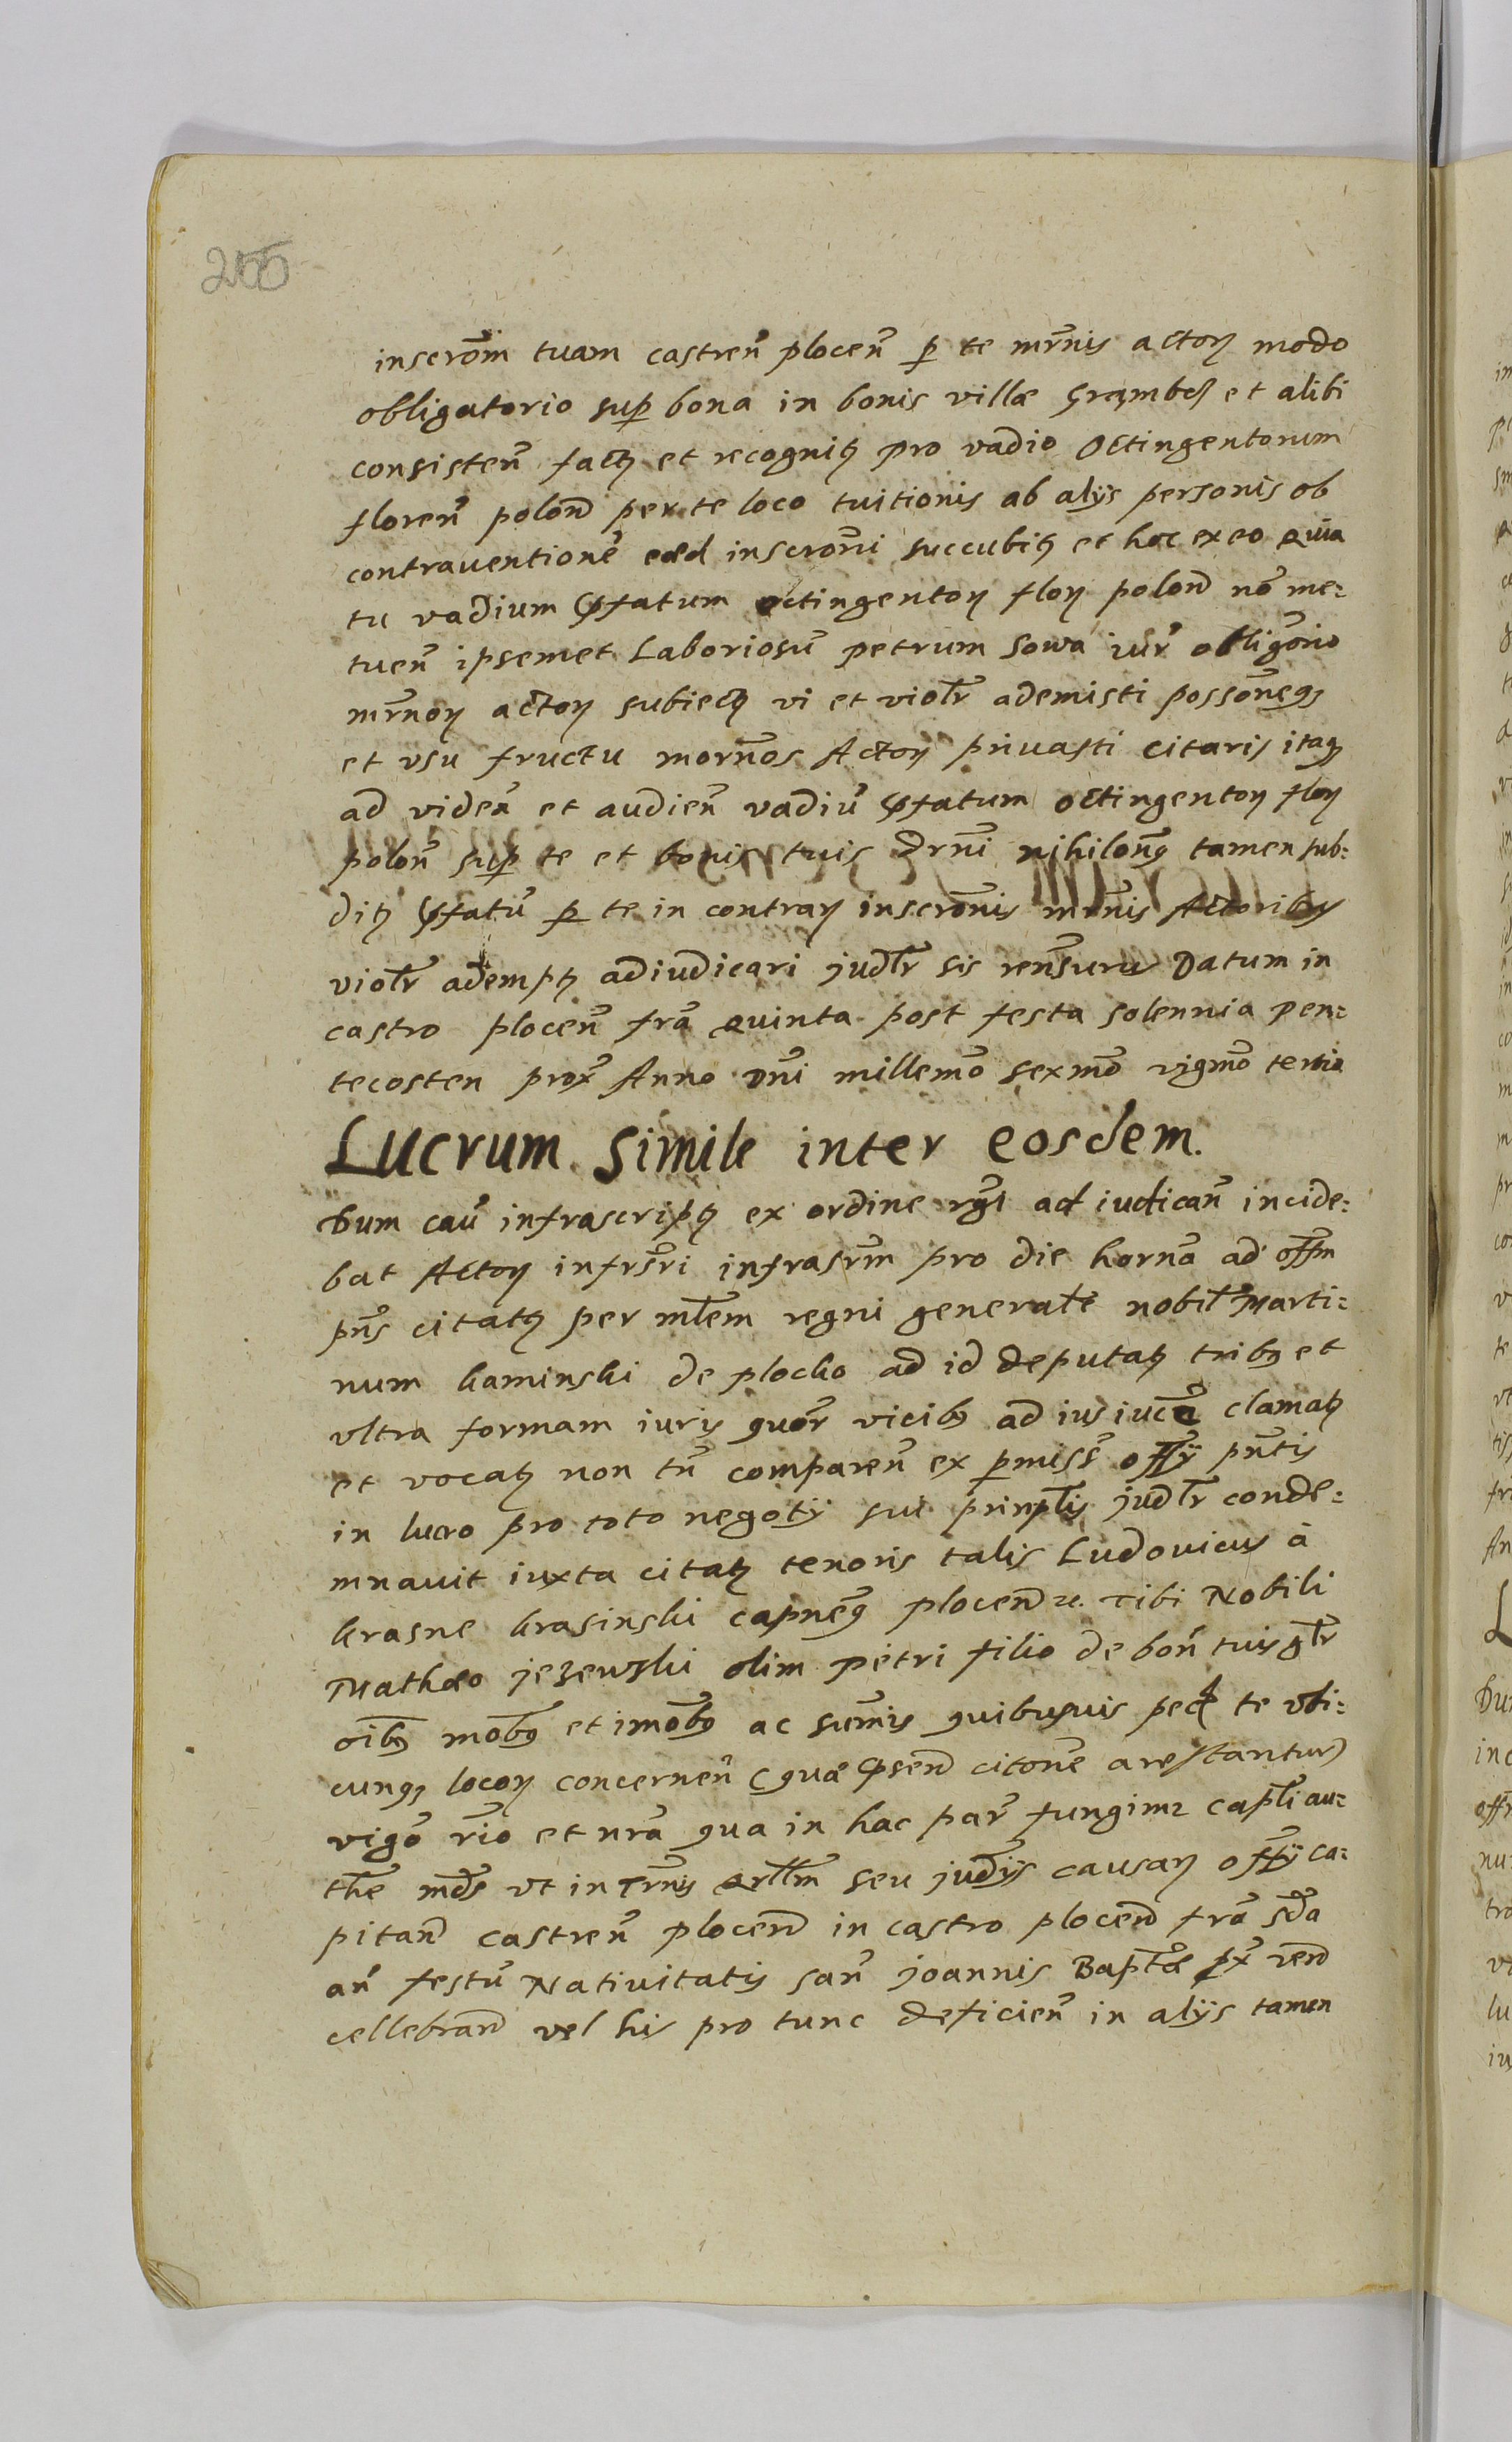 255
inscrõm tuam castren̄ plocen̄ ꝑ te mr̄nis actoꝝ modo
obligatorio suꝑ bona in bonis villæ et alibi
consisten̄ factꝫ et recognitꝫ pro vadio Octingentorum
floren̄ polon̄ per te loco tuitionis ab alijs personis ob
contrauentionē eæd inscrõni succubitꝫ et hoc ex eo quia
tu vadium p̄fatum octingentoꝝ floꝝ polon̄ nō me⸗
tuen̄ ipsemet Laboriosū petrum Sowa iur̄ obligõrio
mr̄noꝝ actoꝝ subiectꝫ vi et viotr̄ ademisti possõneqꝫ
et vsu fructu morn̄os Actoꝝ priuasti citaris itaqꝫ
ad viden̄ et audien̄ vadiū p̄fatum octingentoꝝ floꝝ
polon̄ suꝑ te et bonis tuis nihilon̄qꝫ tamen sub⸗
ditꝫ p̄fatū ꝑ te in contraꝝ inscrõnis mr̄nis Actoribus
violr̄ ademptꝫ adiudicari judlr̄ sis ren̄surus Datum in
castro plocen̄ fr̄a quinta post festa solennia pen⸗
tecosten prox̄ Anno Dn̄i millemõ sexmõ vigmõ tertio
Lucrum Simile inter eosdem.
Dum cau̅ infrascriptꝫ ex ordine rg̅i ad iudican̄ incide⸗
bat Actoꝝ infrsr̄i infrasrm̄ pro die horn̄a ad off̄m
pn̄s citatꝫ per mlt̄em regni generalē nobil̄ Marti⸗
num kaminski de plocko ad id deputatꝫ tribꝫ et
vltra formam iuris quor̄ vicibꝫ ad ius clamatꝫ
et vocatꝫ non tn̄ comparen̄ ex ꝑmiss̄ off̄ij pn̄tis
in lucro pro toto negotij sui prinplīs judlr̄ conde⸗
mnauit iuxta citatꝫ tenoris talis Ludouicus à
krasne krasinski capneq̄ꝫ plocen̄ ꝛc. Tibi Nobili
Mathæo jezewski olim petri filio de bon̄ tuis glr̄
oībꝫ mobꝫ̄ et imobꝫ̄ ac sum̄is quibusuis te vbi⸗
cunqꝫ locoꝝ concernen̄ (quæ p̄sen̄ citõne arestantur)
vigõ rīo et nr̄a qua in hac par̄ fungimꝛ captl̄i au⸗
the md̄s vt in Trn̄is qrll̄m seu judijs causaꝝ off̄ij ca⸗
pitan̄ castren̄ plocen̄ in castro plocen̄ fr̄a sd̄a
an̄ festū Natiuitatis san̄ joannis Bapt̄æ px̄ ven̄
cellebran̄ vel his pro tunc deficien̄ in alijs tamen